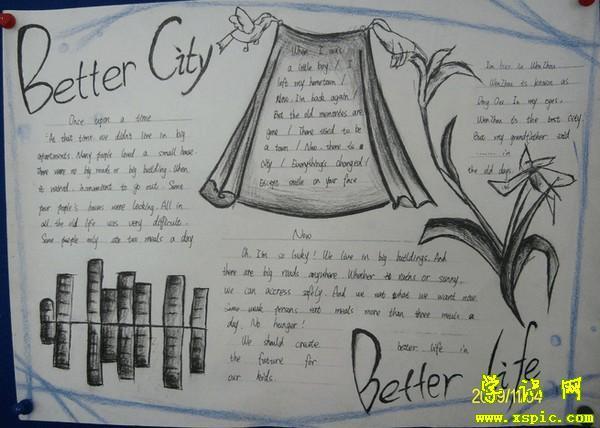 Better City
Once upon a time
At that time we didn't live in big
apartments. Many people lived a small house.
There were no big roads or big building. When
it rained, inconvient to go out. Some
poor people's houses were looking. All in
all, the old life was very difficult.
Some people only ate two meals a day
When I was
a little boy /
left my hometown /
Now I'm back again /
But the old memories are
gone / There used to be
a town / Now there is a
city / Everything's changed /
Except smile on your face
I'm live in WenZhou
WenZhou is known as
In my eyes,
WenZhou is the best city.
But my grandfather said
in
the old days
Now
Oh, I'm so lucky! We live in big buildings. And
there are big roads anywhere. Whether to rains or sunny,
we can accress safely. And we eat what we want now.
Some persons eat meals more than three meals a
day. No hunger!
We should create better life in
the future for
our kids.
Better Life
2009/11/04
学习网
www.xspic.com